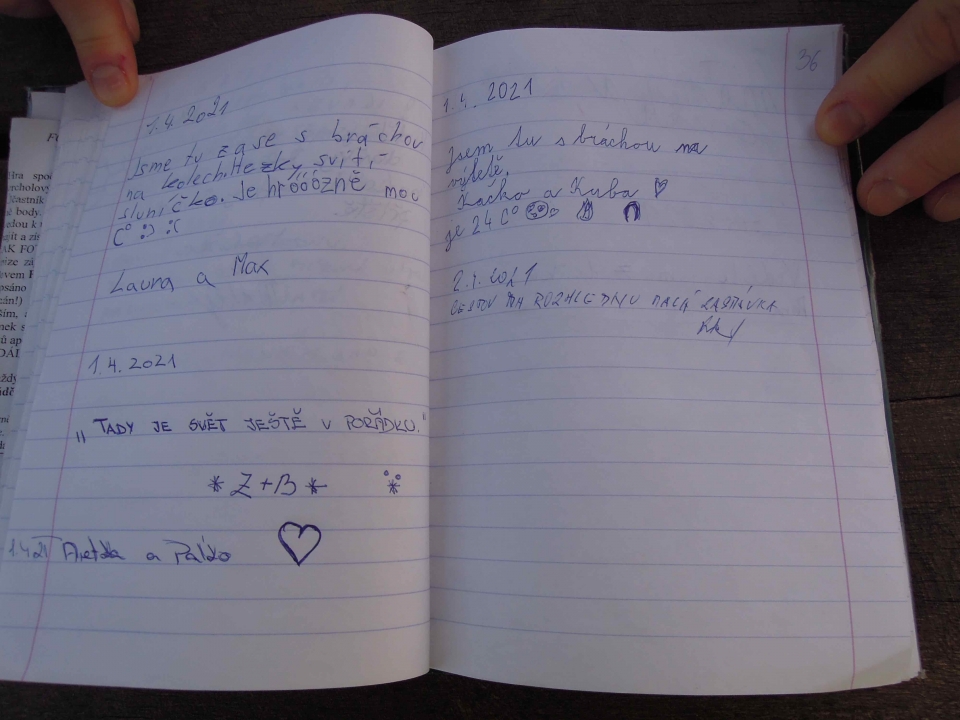 1.4.2021
Jsme tu zase s bráchou
na kolech. Hezky svítí
sluníčko. Je hróóózně moc
C° :) :(
Laura a Max
1.4.2021
„TADY JE SVĚT JEŠTĚ V POŘÁDKU."
* Z + B *
1.4.21 a
36
1.4.2021
Jsem tu s bráchou na
výletě.
Kačko a Kuba
je 24 C°
2.4.2021
CESTOU NA ROZHLEDNU MALÁ ZASTÁVKA